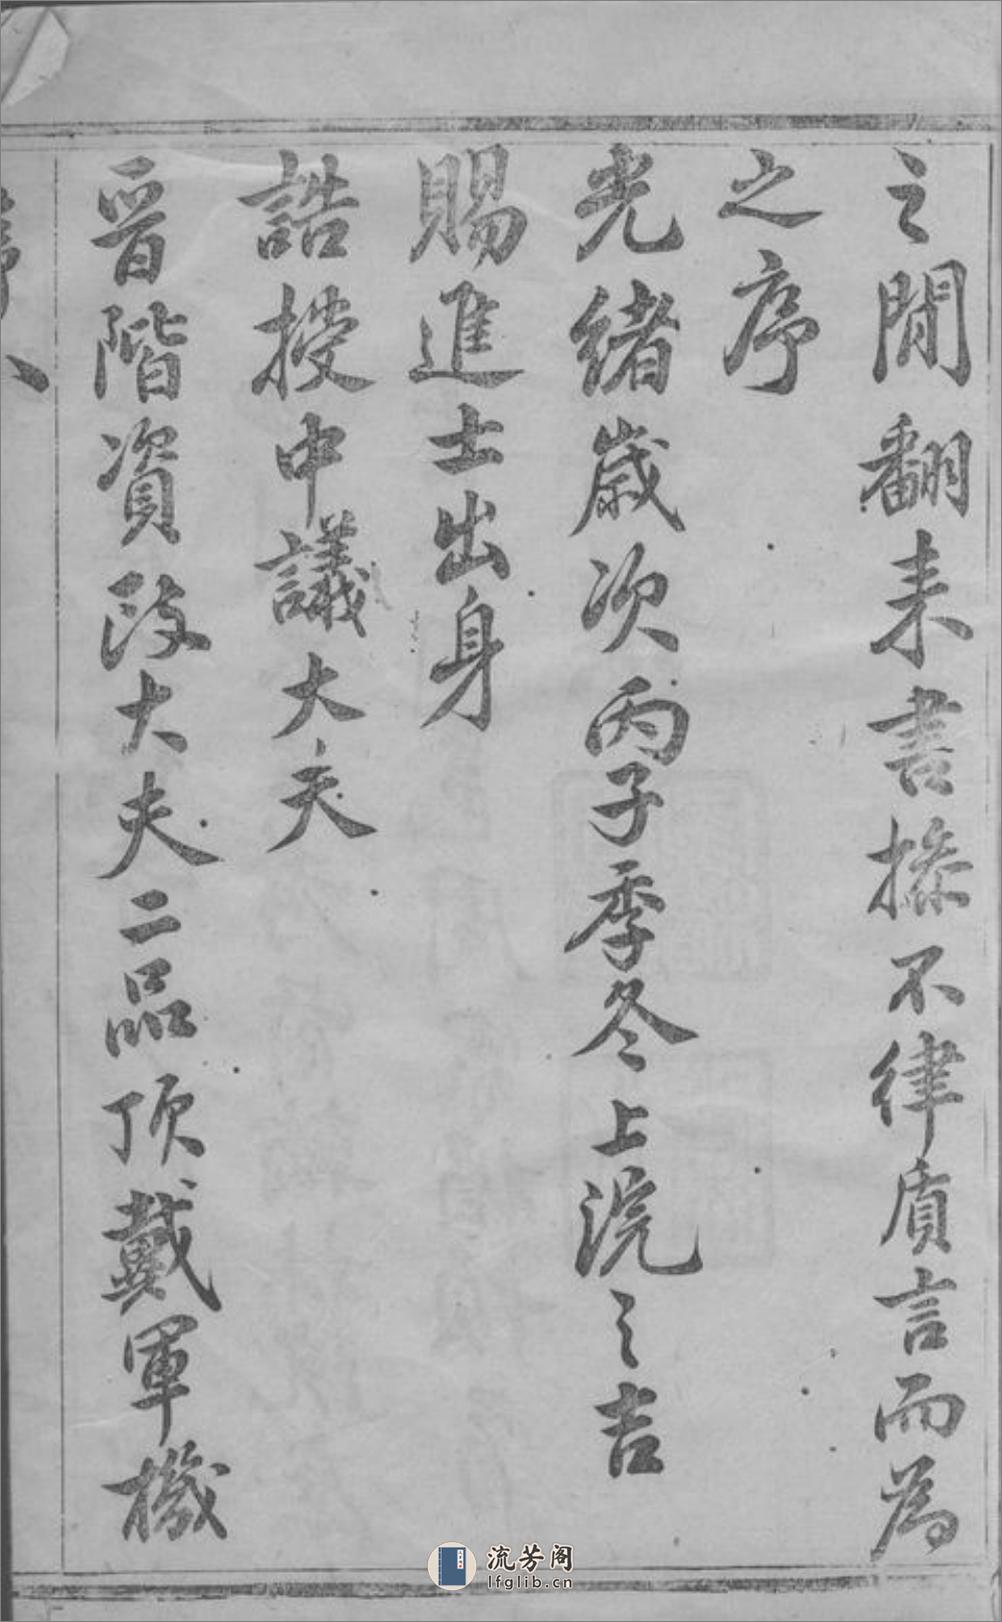 之間翻来書搽不律质言而為
之序
光緒歲次丙子季冬上浣之吉
賜進士出身
誥授中議大夫
晉階資政大夫二品頂戴軍機
流芳阁
lfglib.cn